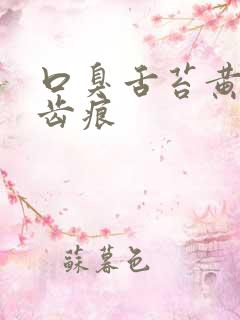 口臭舌苔黄
齿痕
蘇暮色